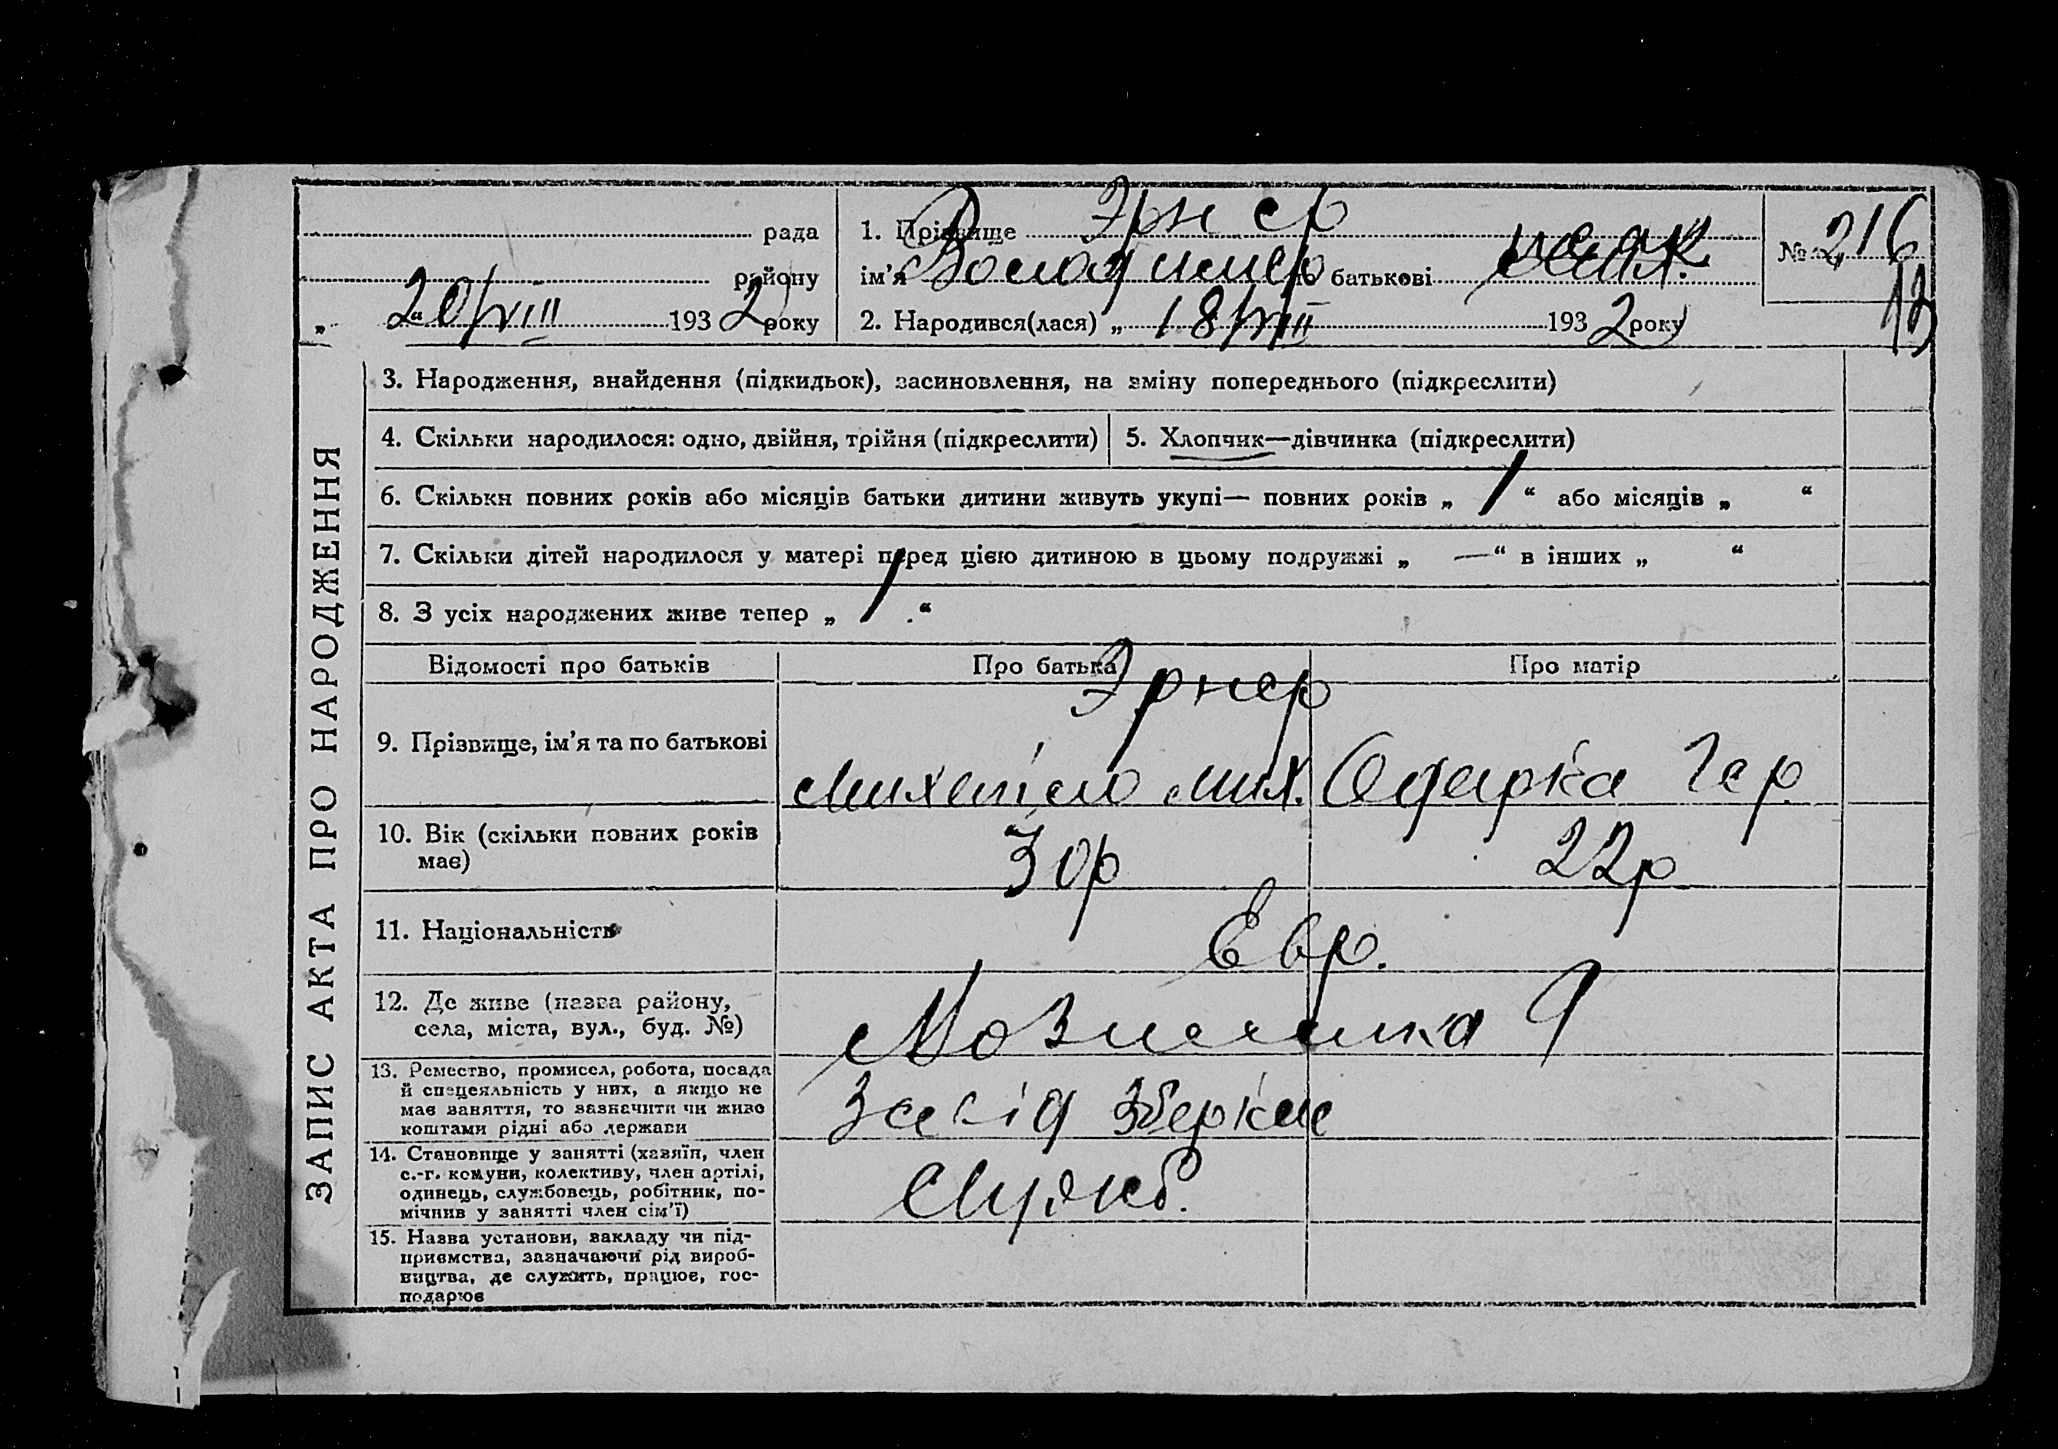 рада
району
„ 20/VIII 1932 року
1. Прізвище Эрнер
ім’я Володимир по батькові
2. Народився(лася) „ 18/VIII 1932 року
№ 216
ЗАПИС АКТА ПРО НАРОДЖЕННЯ
3. Народження, знайдення (підкидьок), засиновлення, на зміну попереднього (підкреслити)
4. Скільки народилося: одно, двійня, трійня (підкреслити)
5. Хлопчик—дівчинка (підкреслити)
6. Скільки повних років або місяців батьки дитини живуть укупі— повних років „ 1 “ або місяців „ “
7. Скільки дітей народилося у матері перед цією дитиною в цьому подружжі „ — “ в інших „ “
8. З усіх народжених живе тепер „ 1 “
Відомості про батьків
Про батька
Про матір
9. Прізвище, ім’я та по батькові
Эрнер
Михайло Мих.
Одарка Гер.
10. Вік (скільки повних років
має)
30р
22р
11. Національність
Євр.
12. Де живе (назва району,
села, міста, вул., буд. №)
9
13. Ремество, промисел, робота, посада
й спецеяльність у них, а якщо не
має заняття, то зазначити чи живе
коштами рідні або держави
14. Становище у занятті (хазяїн, член
с.-г. комуни, колективу, член артілі,
одинець, службовець, робітник, по-
мічнив у занятті член сім’ї)
15. Назва установи, закладу чи під-
приємства, зазначаючи рід вироб-
ництва, де служить, працює, гос-
подарює